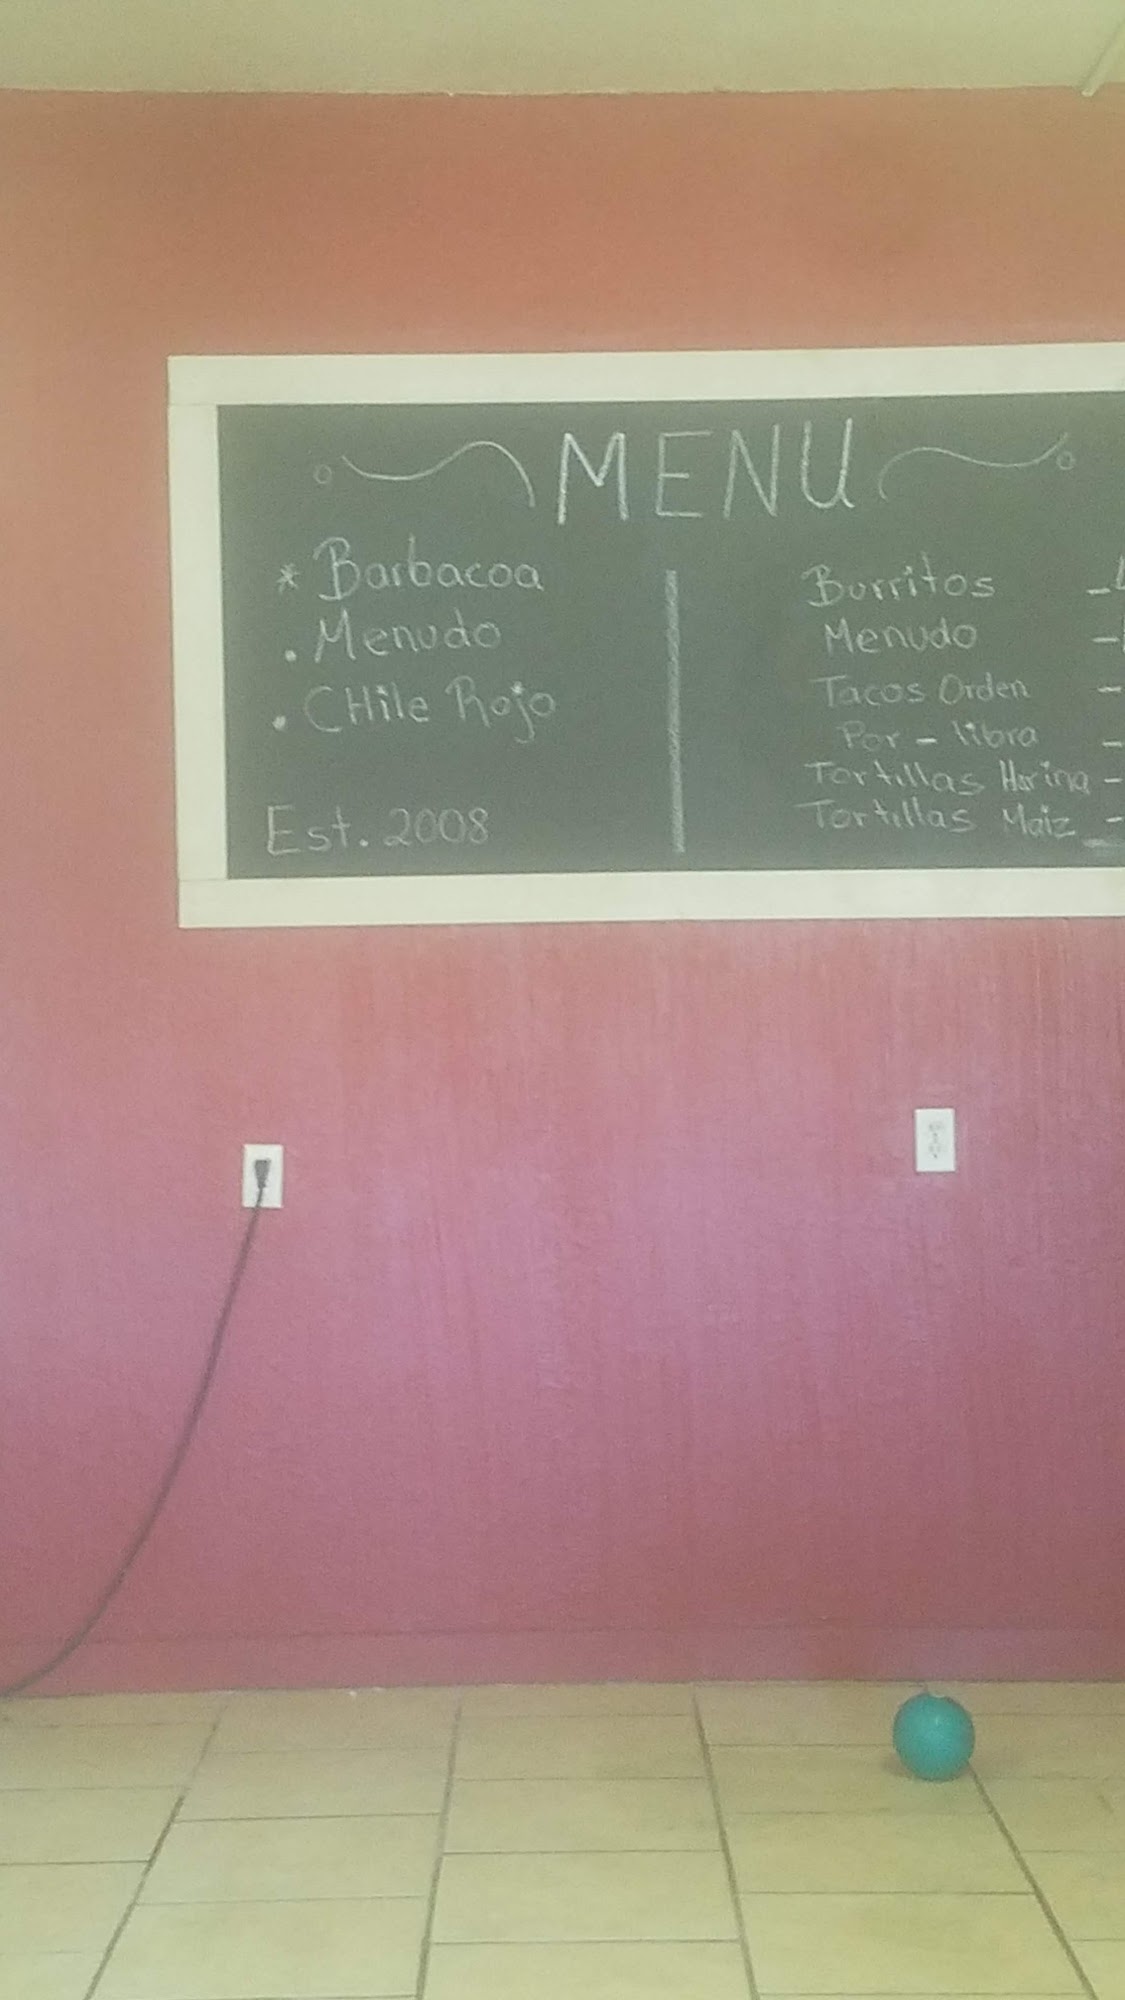 MENU
* Barbacoa
. Menudo
. CHile Rojo
Est. 2008
Burritos -
Menudo -
Tacos Orden -
Por - libra -
Tortillas Harina -
Tortillas Maiz -